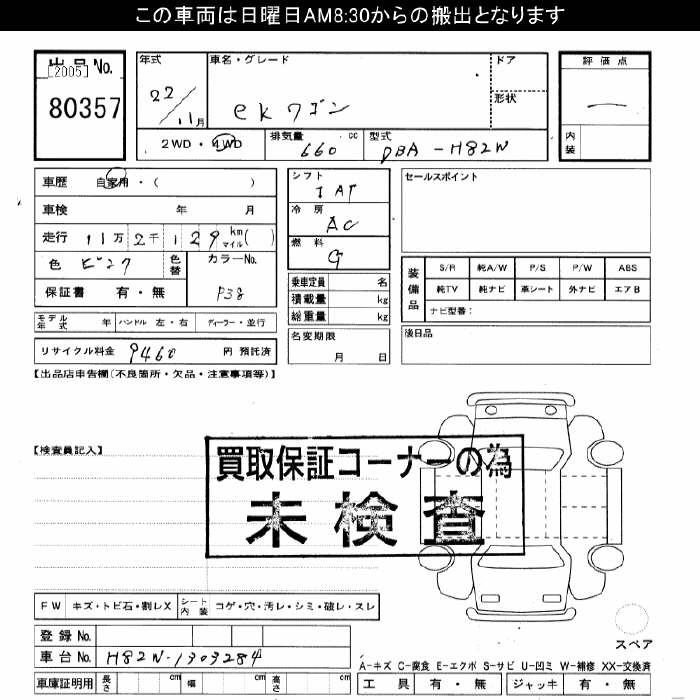 この車両は日曜日AM8:30からの搬出となります
出品No.
[2005]
80357
年式
22/11月
車名・グレード
ekワゴン
ドア
形状
評価点
内装
2WD・4WD
排気量 660 cc
型式 DBA-H82W
車歴 自家用・( )
車検 年 月
走行 11万2千129 km マイル( )
色 ピンク
色替
カラーNo. P38
保証書 有・無
シフト
IAT
冷房
AC
燃料
G
乗車定員 名
積載量 kg
総重量 kg
セールスポイント
装備品
S/R 純A/W P/S P/W ABS
純TV 純ナビ 革シート 外ナビ エアB
ナビ型番:
モデル年式 年 ハンドル 左・右 ディーラー・並行
名変期限
月 日
後日品
リサイクル料金 9460 円 預託済
【出品店申告欄(不良箇所・欠品・注意事項等)】
【検査員記入】
買取保証コーナーの為
未検査
FW キズ・トビ石・割レX シート内装 コゲ・穴・汚レ・シミ・破レ・スレ
スペア
登録No.
車台No. H82W-1303284
A-キズ C-腐食 E-エクボ S-サビ U-凹ミ W-補修 XX-交換済
車庫証明用 長さ cm 幅 cm 高さ cm
工具 有・無 ジャッキ 有・無